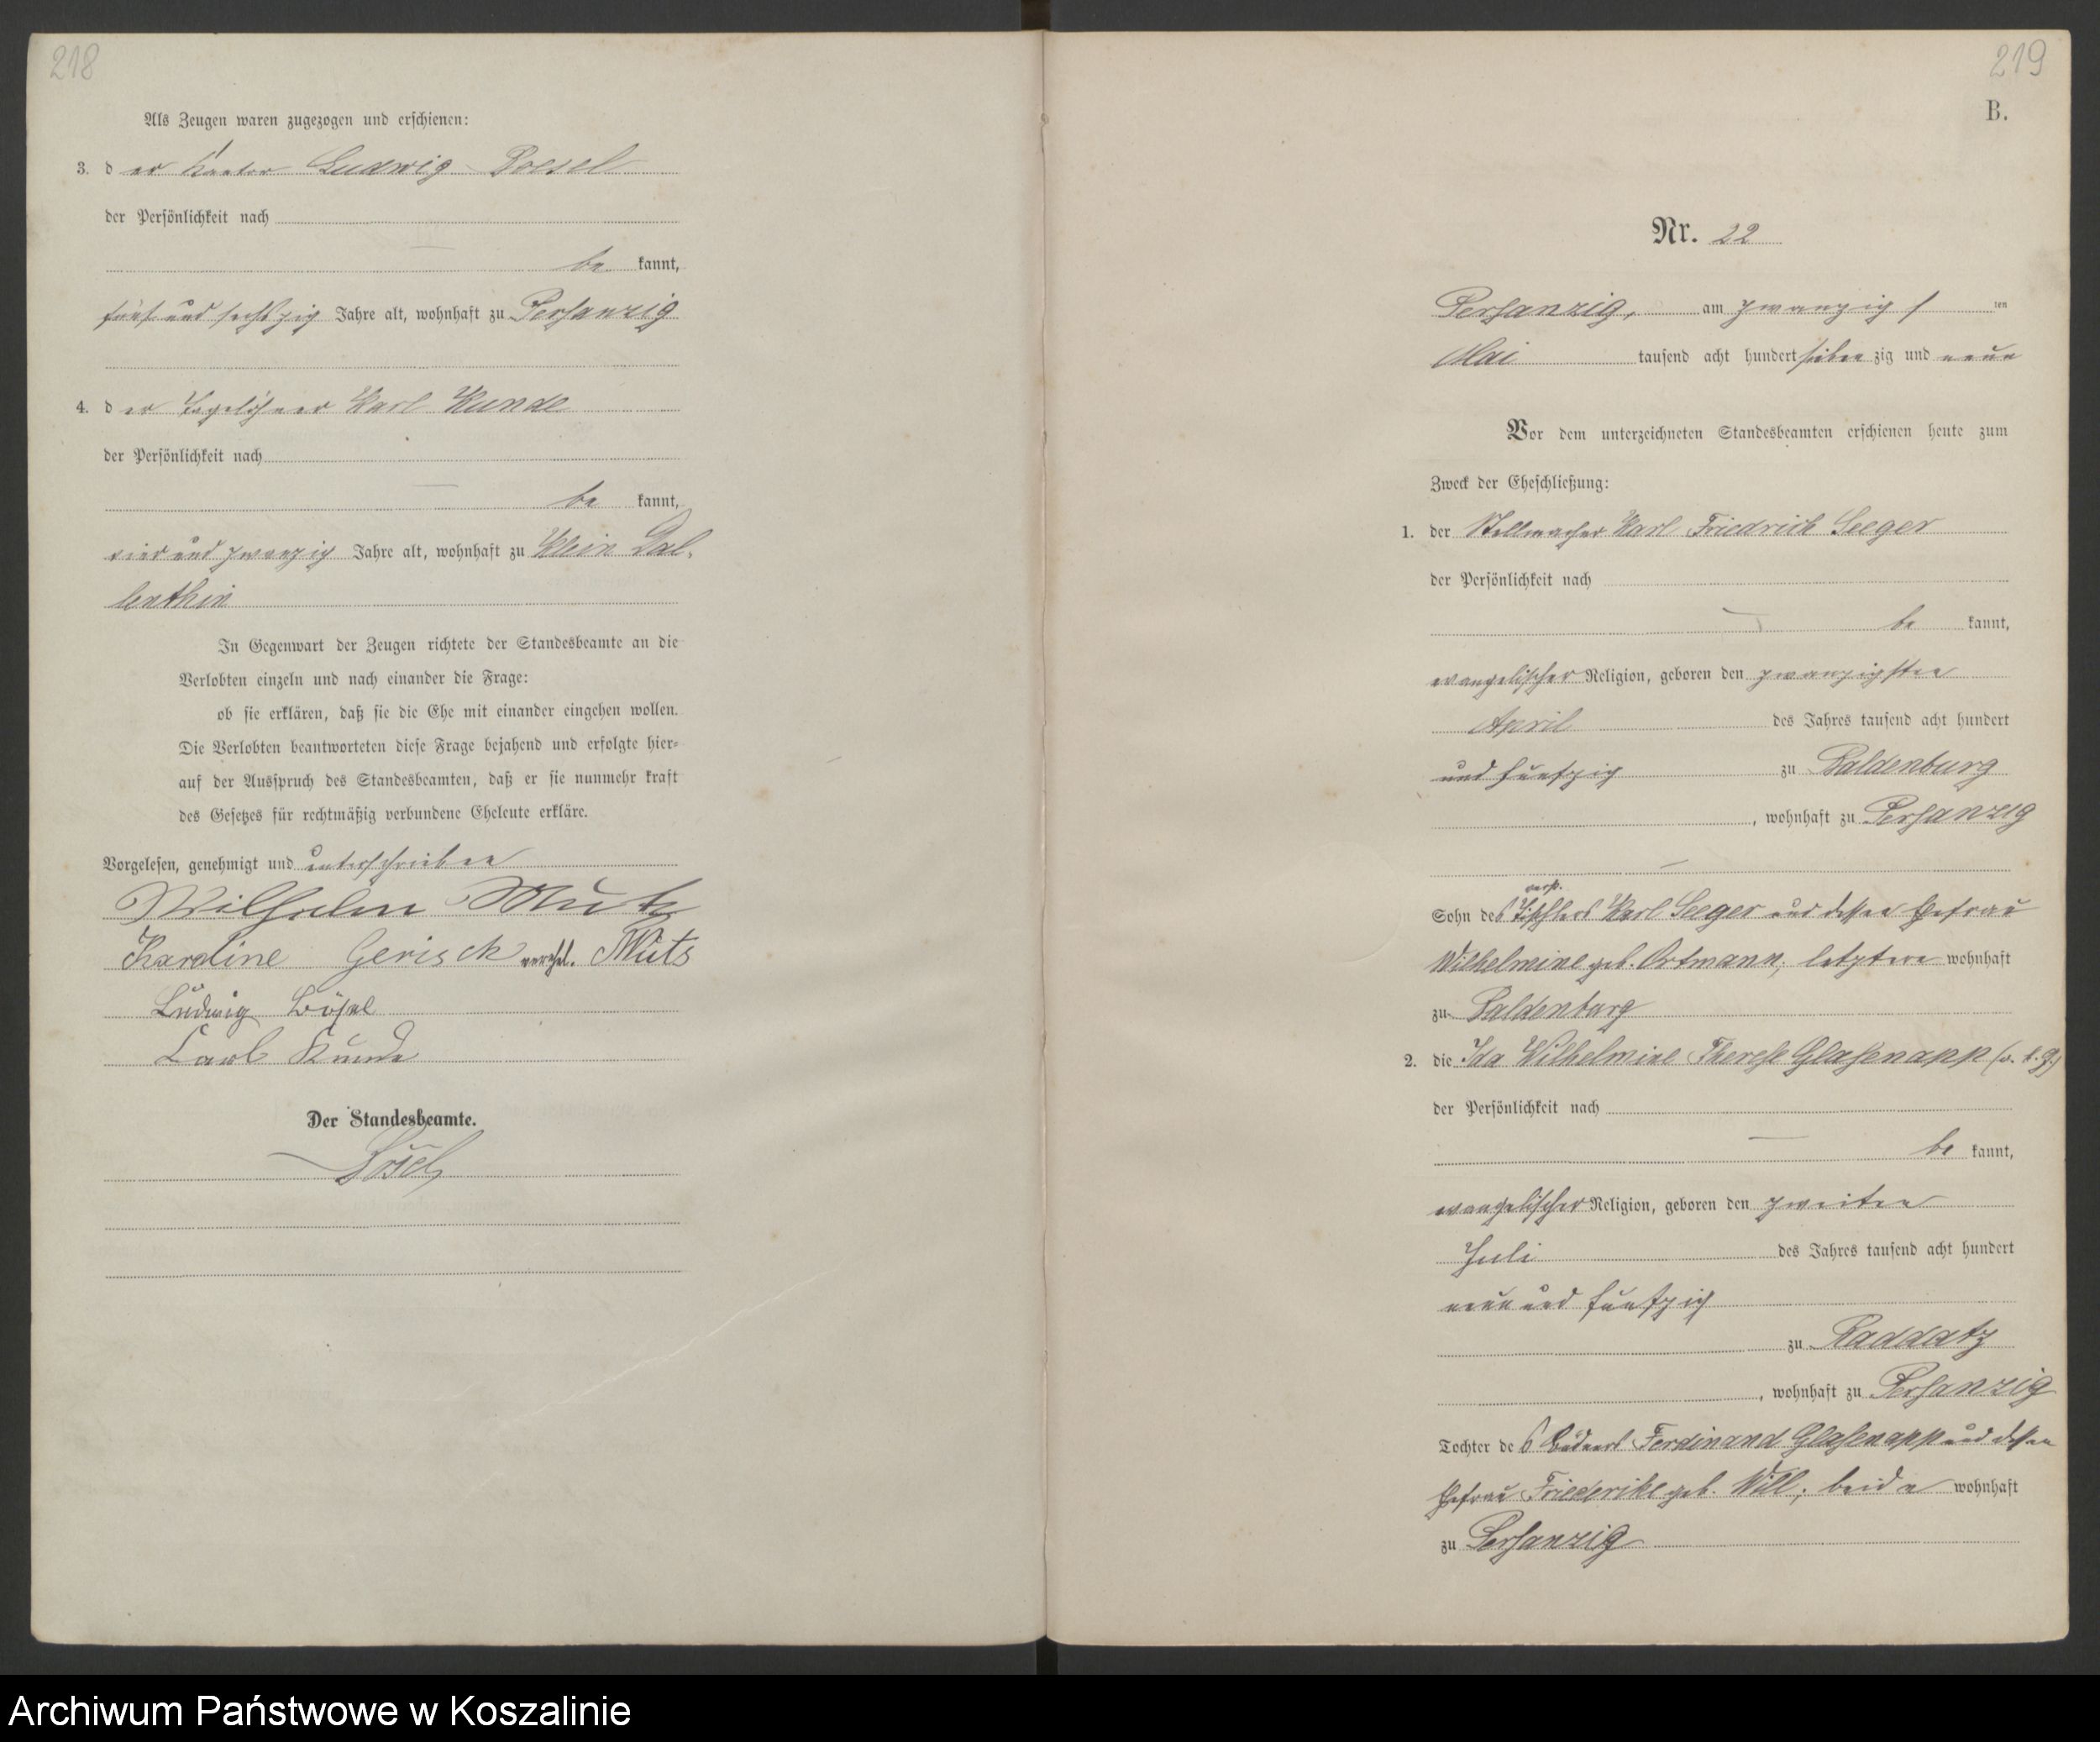 218
Als Zeugen waren zugezogen und erschienen:
3. d er Kantor Ludwig Boesel
der Persönlichkeit nach
be kannt,
fünf und sechszig Jahre alt, wohnhaft zu Persanzig
4. d er Tagelöhner Karl Kunde
der Persönlichkeit nach
be kannt,
vier und zwanzig Jahre alt, wohnhaft zu Klein Dal-
lenthin
In Gegenwart der Zeugen richtete der Standesbeamte an die
Verlobten einzeln und nach einander die Frage:
ob sie erklären, daß sie die Ehe mit einander eingehen wollen.
Die Verlobten beantworteten diese Frage bejahend und erfolgte hier-
auf der Ausspruch des Standesbeamten, daß er sie nunmehr kraft
des Gesetzes für rechtmäßig verbundene Eheleute erkläre.
Vorgelesen, genehmigt und unterschrieben
Wilhelm Mutz
Karoline Gerisch verehel. Muts
Ludwig Bösel
Carl Kunde
Der Standesbeamte.
Bösel
219
B.
Nr. 22
Persanzig, am zwanzigs ten
Mai tausend acht hundert sieben zig und neun
Vor dem unterzeichneten Standesbeamten erschienen heute zum
Zweck der Eheschließung:
1. der Stellmacher Karl Friedrich Seeger
der Persönlichkeit nach
be kannt,
evangelischer Religion, geboren den zwanzigsten
April des Jahres tausend acht hundert
und fünfzig zu Baldenburg
, wohnhaft zu Persanzig
verst.
Sohn des Tischlers Karl Seeger und dessen Ehefrau
Wilhelmine geb. Ortmann, letztere wohnhaft
zu Baldenburg
2. die Ida Wilhelmine Therese Glasenapp
der Persönlichkeit nach
be kannt,
evangelischer Religion, geboren den zweiten
Juli des Jahres tausend acht hundert
neun und fünfzig
zu Raddatz
, wohnhaft zu Persanzig
Tochter des Büdners Ferdinand Glasenapp und dessen
Ehefrau Friederike geb. Will, beide wohnhaft
zu Persanzig
Archiwum Państwowe w Koszalinie